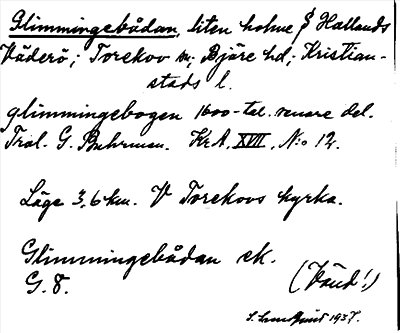 Glimmingebådan, liten holme § Hallands
Väderö; Torekov sn; Bjäre hd; Kristian-
stads l.
glimmingebogen 1600-tal. senare del.
Trol. G. Buhrman. KrA, XVII, N:o 12.
Läge 3,6 km. V Torekovs kyrka.
Glimmingebådan ek.
G. 8.
(Vänd!)
S. Lundquist 1937.